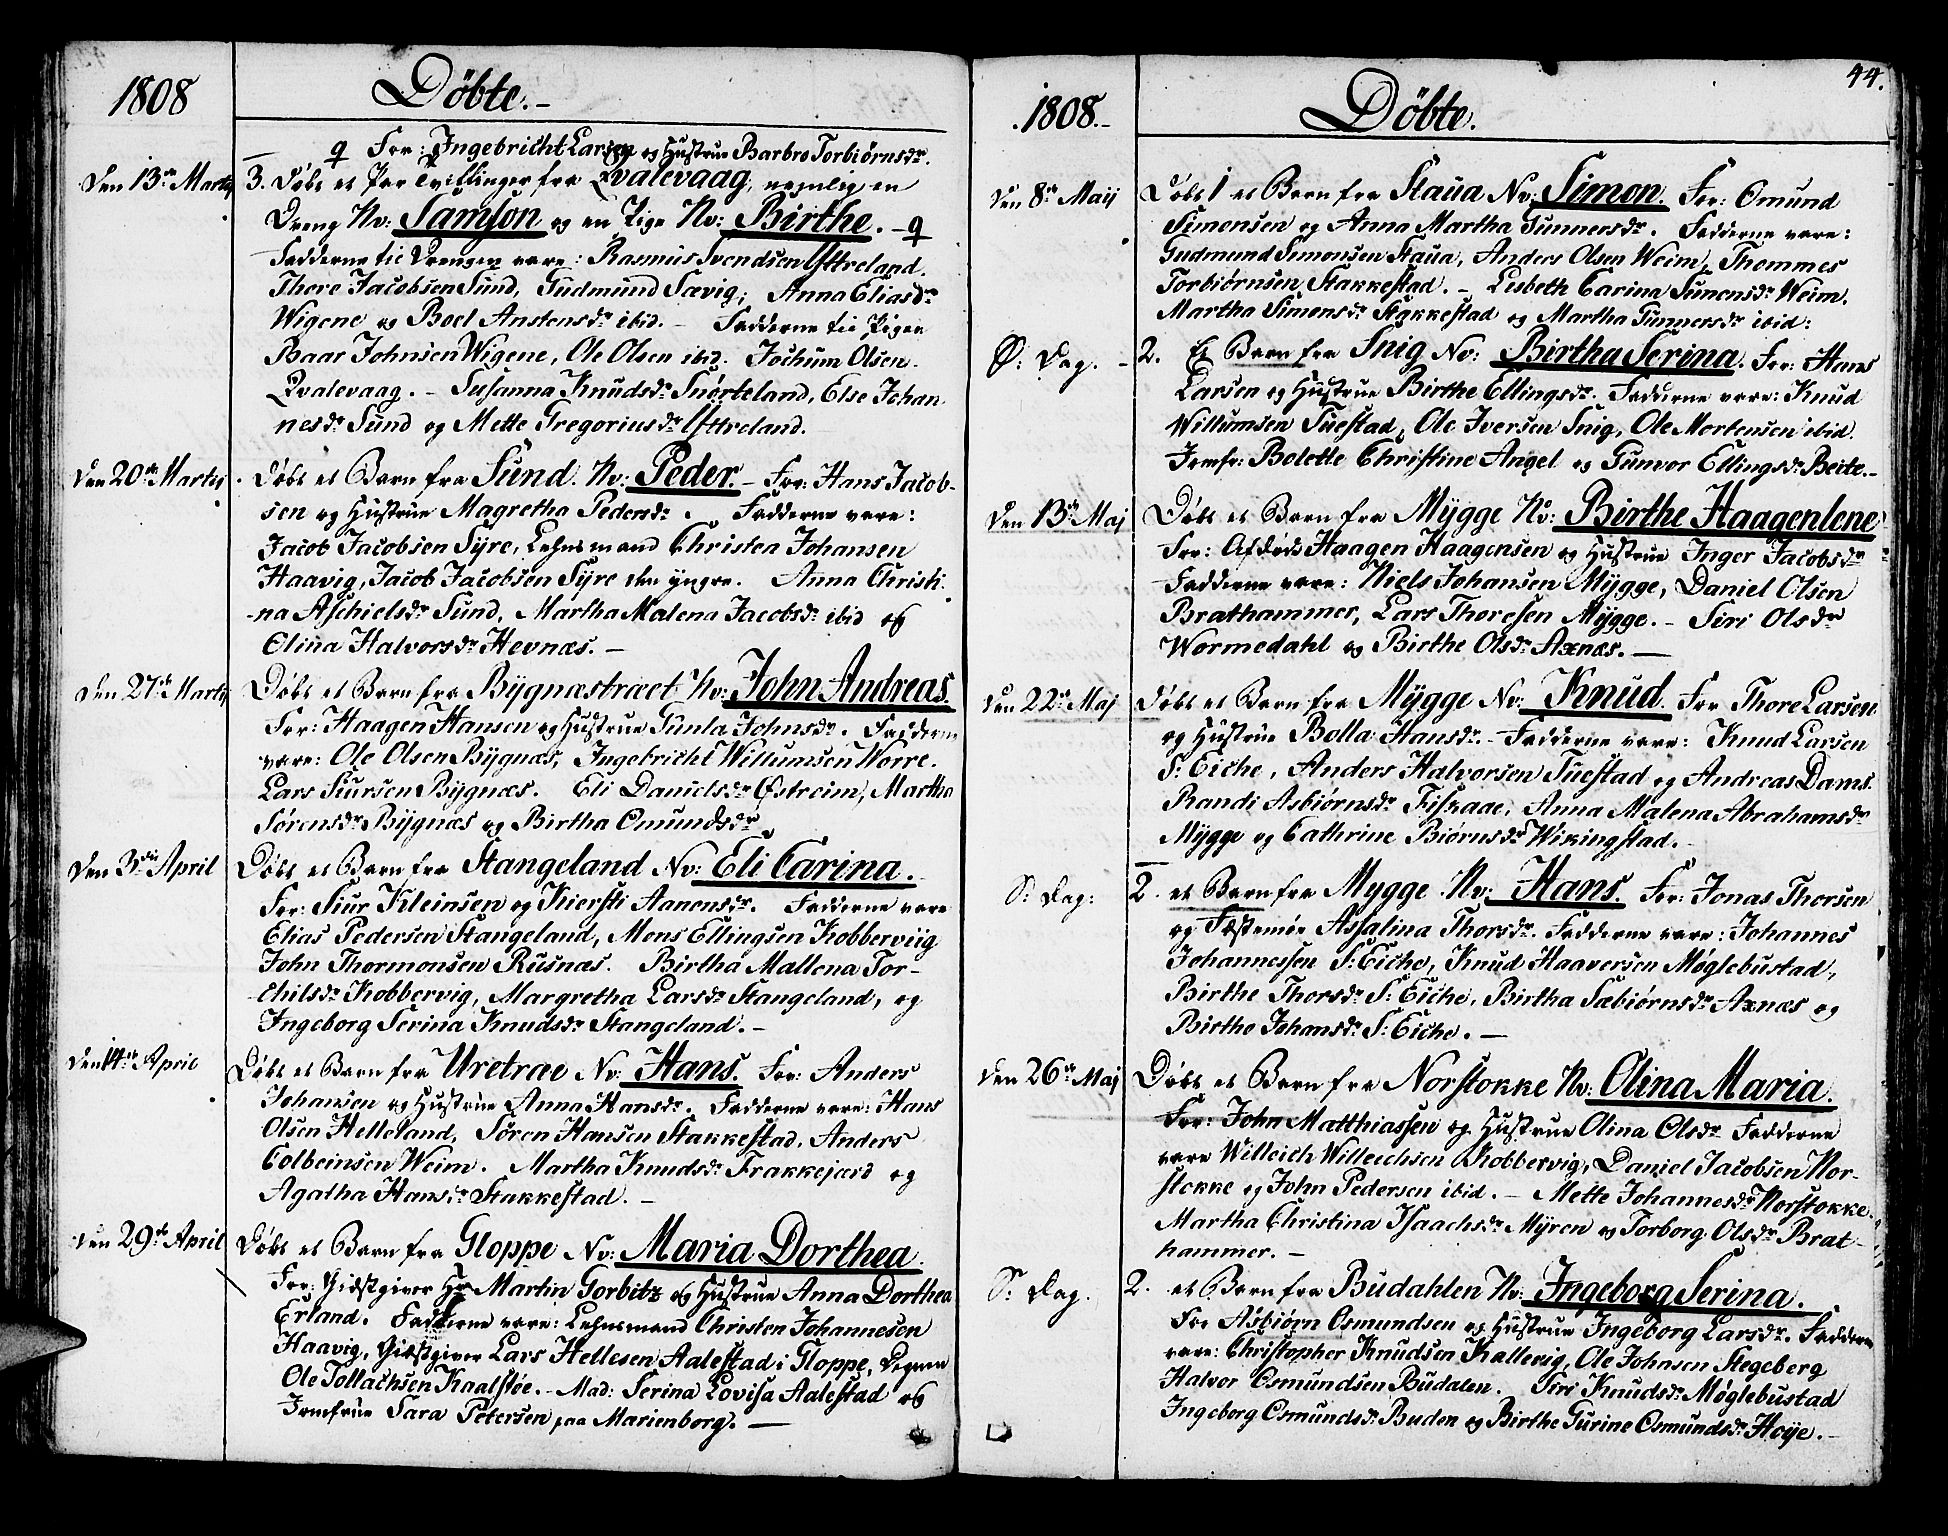 1808
Döbte.-
q For: Ingebricht Larsen og Hustrue Barbro Torbiørnsdr.
Den 13de Martij
3. Døbt et Par Tvillinger fra Qvalevaag, nemlig en
Dreng Nv: Samson og en Pige Nv: Birthe. - q
Fadderne til Drengen vare: Rasmus Svendsen Yttreland.
Thore Jacobsen Sund, Gudmund Sævig; Anna Eliasdr
Wigene og Boel Anstensdr ibid. - Fadderne til Pigen
Baar Johnsen Wigene, Ole Olsen ibid. Jochum Olsen
Qvalevaag. - Susanna Knudsdr Snørteland, Else Johan-
nesdr Sund og Mette Gregoriusdr Yttreland.
Den 20de Martij
Døbt et Barn fra Sund. Nv: Peder. - For: Hans Jacob-
sen og Hustrue Magretha Pedersdr. Fadderne vare:
Jacob Jacobsen Syre, Lehnsmand Christen Johansen
Haavig, Jacob Jacobsen Syre den yngre. Anna Christi-
na Aschielsdr Sund, Martha Malena Jacobsdr ibid og
Elina Halvorsdr Hevnæs. -
Den 27de Martij
Døbt et Barn fra Bygnæstræet Nv: John Andreas.
For: Haagen Hansen og Hustrue Gunla Johnsdr. Fadderne
vare: Ole Olsen Bygnæs, Ingebricht Willumsen Worre.
Lars Siursen Bygnæs. Eli Danielsdr Østreim, Martha
Sørensdr Bygnæs og Birtha Omundsdr
Den 3die April
Døbt et Barn fra Stangeland Nv: Eli Carina.
For: Siur Kleinsen og Kiersti Aanensdr. Fadderne vare
Elias Pedersen Stangeland, Mons Ellingsen Kobberviig
John Thormonsen Rusnæs. Birtha Mallena Tor-
chilsdr Kobbervig, Margretha Larsdr Stangeland, og
Ingeborg Serina Knudsdr Stangeland. -
Den 14de April
Døbt et Barn fra Uretrae Nv: Hans. For: Anders
Johansen og Hustrue Anna Hansdr. Fadderne vare: Hans
Olsen Helleland, Søren Hansen Stakkestad, Anders
Colbeinsen Weim. Martha Knudsdr Frakkejerd og
Agatha Hansdr Stakkestad. -
Den 29de April
Døbt et Barn fra Gloppe Nv: Maria Dorthea.
For: Giæstgiver Hr Martin Gorbitz og Hustrue Anna Dorthea
Erland. Fadderne vare: Lehnsmand Christen Johannesen
Haavig, Giæstgiver Lars Hellesen Aalestad i Gloppe, Degnen
Ole Tollachsen Kaalstøe. - Mad: Serina Lovisa Aalestad og
Jomfrue Sara Petersen paa Marienborg. -
1808.-
Döbte.
44.
Den 8de Maij
Døbt 1 et Barn fra Staua Nv: Simon. For: Omund
Simonsen og Anna Martha Gunnersdr. Fadderne vare:
Gudmund Simonsen Staua, Anders Olsen Weim, Thommes
Torbiørnsen Stakkestad. - Lisbeth Carina Simensdr Weim.
Martha Simonsdr Stakkestad og Martha Gunnersdr ibid:
S: Dag. -
2. Et Barn fra Snig Nv: Birtha Serina. For: Hans
Larsen og Hustrue Birthe Ellingsdr. Fadderne vare: Knud
Willumsen Tuestad, Ole Iversen Snig, Ole Mortensen ibid.
Jomfr: Bolette Christine Angel og Gunvor Ellingsdr Beite. -
Den 13de Maj
Døbt et Barn fra Mygge Nv: Birthe Haagenlene
For: Afdøde Haagen Haagensen og Hustrue Inger Jacobsdr
Fadderne vare: Niels Johansen Mygge, Daniel Olsen
Brathammer, Lars Thoresen Mygge. - Siri Olsdr
Wormedahl og Birthe Olsdr Axnæs. -
Den 22de Maj
Døbt et Barn fra Mygge Nv: Knud. For Thore Larsen
og Hustrue Bolla Hansdr. - Fadderne vare: Knud Larsen
S: Eiche, Anders Halvorsen Tuestad og Andreas Dams.
Randi Asbiørnsdr Fiskaae, Anna Malena Abrahamsdr
Mygge og Cathrine Biørnsdr Wikingstad.
S: Dag:
2. et Barn fra Mygge Nv: Hans. For: Jonas Thorsen
og Fæstemøe Assalina Thorsdr. Fadderne vare: Johannes
Johannessen S: Eiche, Knud Haaversen Møglebustad,
Birthe Thorsdr S: Eiche, Birtha Sæbiørnsdr Axnæs og
Birthe Johansdr S: Eiche. -
Den 26de Maj
Døbt et Barn fra Norstokke Nv: Olina Maria.
For: John Matthiassen og Hustrue Olina Olsdr Fadderne
vare Willeich Willeichsen Kobbervig, Daniel Jacobsen Nor-
stokke og John Pedersen ibid. - Mette Johannesdr Norstokke.
Martha Christina Isaachsdr Myren og Torborg Olsdr Brat-
hammer. -
S: Dag.
2. et Barn fra Budahlen Nv: Ingeborg Serina.
For Asbiørn Osmundsen og Hustrue Ingeborg Larsdr. Fadderne
vare: Christopher Knudsen Kallevig, Ole Johnsen Stegeberg
Halvor Osmundsen Budalen. Siri Knudsdr Møglebustad
Ingeborg Osmundsdr Buden og Birthe Gurine Osmundsdr Høye. -